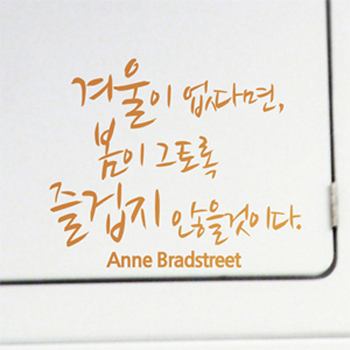 겨울이 없다면,
봄이 그토록
즐겁지 않을것이다.
Anne Bradstreet